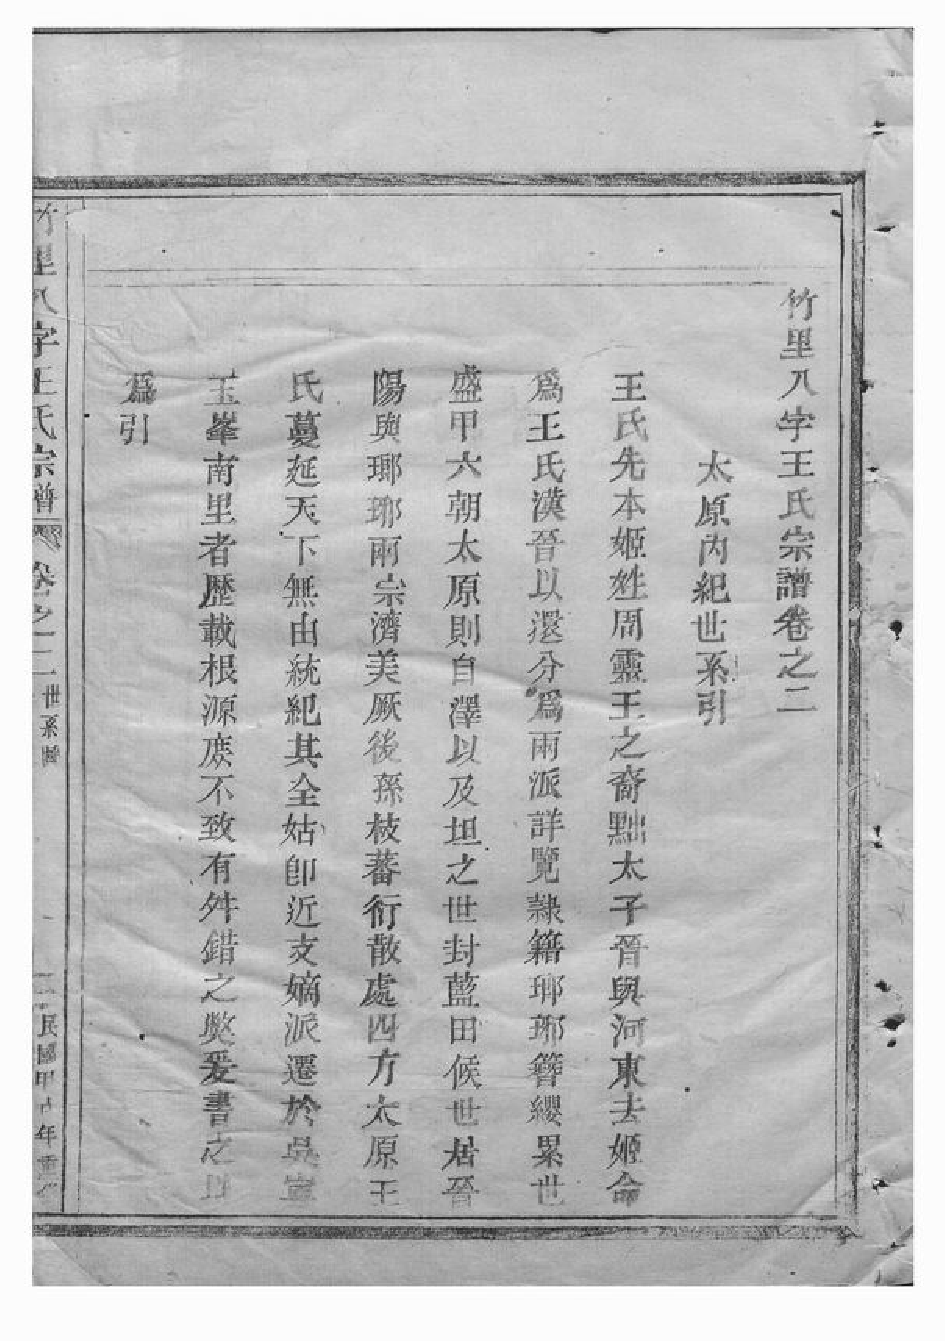 竹里八字王氏宗譜卷之二
太原內紀世系引
王氏先本姬姓周靈王之裔黜太子晉與河東去姬命
爲王氏漢晉以還分爲兩派詳覽隷籍瑯琊簪纓累世
盛甲六朝太原則自澤以及坦之世封藍田候世居晉
陽與瑯琊兩宗濟美厥後孫枝蕃衍散處四方太原王
氏蔓延天下無由統紀其全姑卽近支嫡派遷於吳
玉峯南里者歷載根源庻不致有舛錯之獘爰書之以
爲引
竹里八字王氏宗譜 卷之二 世系圖 民國甲年重